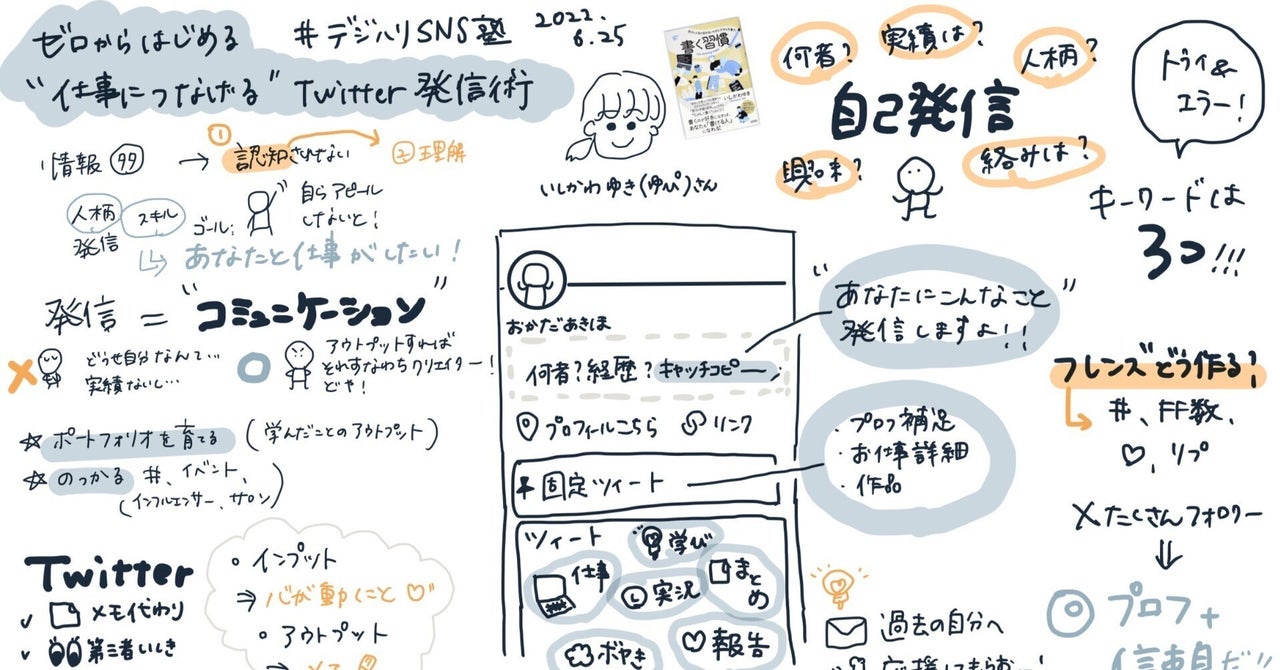 ゼロからはじめる
"仕事につなげる" Twitter 発信術
#デジハリSNS塾
2022.
6.25
書く習慣
いしかわゆき
いしかわゆき(ゆぴ)さん
情報
→ ① 認知されない
②理解
人柄
スキル
発信
ゴール:
自らアピール
しないと!
あなたと仕事がしたい!
発信 = "コミュニケーション"
どうせ自分なんて…
実績ないし…
アウトプットすれば
それすなわちクリエイター!
どや!
☆ ポートフォリオを育てる (学んだことのアウトプット)
☆ のっかる #、イベント、
(インフルエンサー、サロン)
Twitter
✓ メモ代わり
✓ 第三者いしき
○ インプット
⇒ 心が動くこと ♡
○ アウトプット
おかだあきほ
何者?経歴?キャッチコピー
プロフィールこちら
リンク
固定ツィート
ツィート
学び
仕事
実況
まとめ
ボヤき
♡報告
何者?
実績は?
人柄?
自己発信
興味?
絡みは?
"あなたにこんなこと
発信しますよ!!"
・プロフ補足
・お仕事詳細
・作品
過去の自分へ
トライ&
エラー!
キーワードは
3つ!!!
フレンズどう作る?
#、FF数、
♡、リプ
×たくさんフォロー
⇓
◎ プロフ+